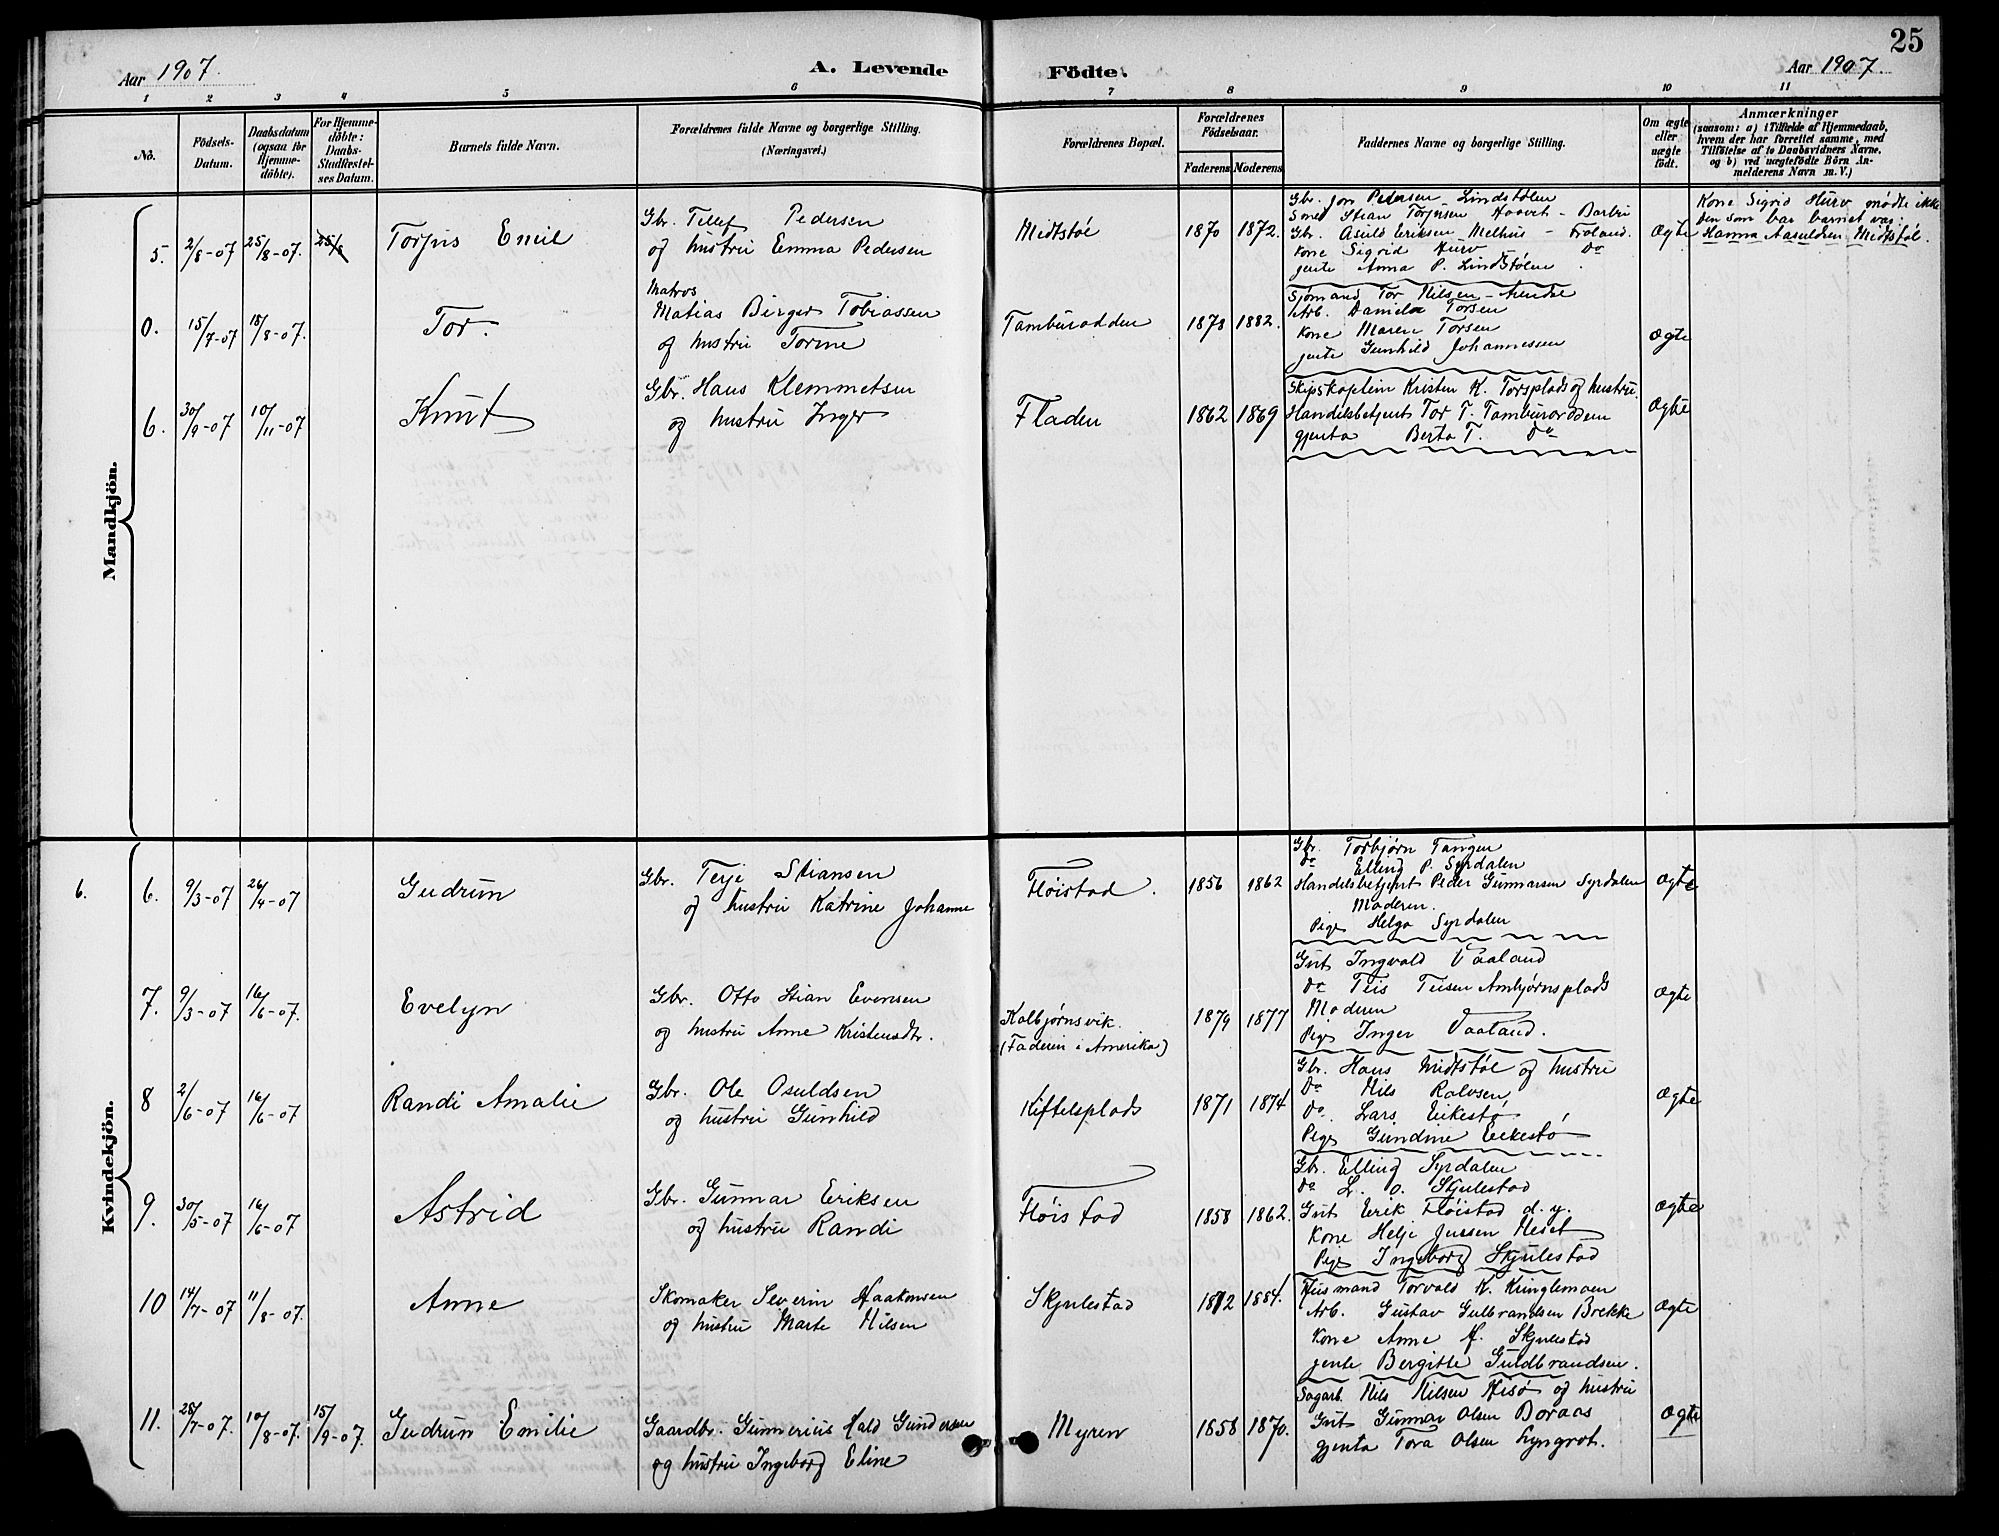 25
Aar 1907.
A. Levende Födte.
Aar 1907
1 2 3 4 5 6 7 8 9 10 11
No.
Födsels-Datum.
Daabsdatum (ogsaa for Hjemmedöbte).
For Hjemmedöbte: Daabs-Stadfæstelses Datum.
Barnets fulde Navn.
Forældrenes fulde Navne og borgerlige Stilling.
(Næringsvei.)
Forældrenes Bopæl.
Forældrenes Födselsaar.
Faderens Moderens
Faddernes Navne og borgerlige Stilling.
Om ægte eller uægte födt.
Anmærkninger
(saasom: a) i Tilfælde af Hjemmedaab,
hvem der har forrettet samme, med
Tilföielse af to Daabsvidners Navne,
og b) ved uægtefödte Börn An-
melderens Navn m. V.)
Mandkjön.
5. 2/8-07 25/8-07. 25/8 Torjus Emil
Gbr. Tellef Pedersen
og hustru Emma Pedersen
Midtstøl 1870 1872.
Gbr. Jon Pedersen Lindstølen
Smed Stian Torjusen Haavet - Barbu
Gbr. Asuld Eriksen Melhus - Froland.
Kone Sigrid Hurv Do
jente Anna P. Lindstølen
Ægte
Kone Sigrid Hurv mødte ikke
den som bar barnet var:
Hanna Aasuldsen Midtstøl.
0. 15/7-07 18/8-07. Tor.
Matros
Matias Birger Tobiassen
og hustru Torine
Tamburodden 1878 1882.
Sjømand Tor Nilsen - Arendal
Arb. Daniel Torsen
Kone Maren Torsen
jente Gunhild Johannessen
Ægte
6. 30/9-07 10/11-07 Knut
Gbr. Hans Klemmetsen
og hustru Inger
Fladen 1862 1869
Skipskaptein Kristen K. Torsplads og hustru.
Handelsbetjent Tor T. Tamburodden
gjenta Berta T. Do
Ægte
Kvindekjön.
6. 6. 9/3-07 26/4-07 Gudrun
Gbr. Terje Stiansen
og hustru Katrine Johanne
Fløistad. 1856 1862
Gbr. Torbjørn Tangen
Do Elling P. Syrdalen
Handelsbetjent Peder Gunnarsen Syrdalen
Moderen.
Pige Helga Syrdalen
Ægte
7. 9/3-07 16/6-07. Evelyn
Gbr. Otto Stian Evensen
og hustru Anne Kristensdtr.
Kolbjørnsvik.
(Faderen i Amerika) 1879 1877
Gut Ingvald Vaaland
Do Teis Teisen Ambjørnsplads
Moderen
Pige Inger Vaaland.
Ægte
8 2/6-07 16/6-07 Randi Amalie
Gbr. Ole Osuldsen
og hustru Gunhild
Kifteleplads 1871 1874
Gbr. Hans Midtstøl og hustru
Do Nils Ralvsen
Do. Lars Eikestø
Pige Gundine Eikestø
Ægte
9. 30/5-07 16/6-07 Astrid
Gbr. Gunnar Eriksen
og hustru Randi
Fløistad 1858 1862.
Gbr. Elling Syrdalen
Do L. O. Skjulestad
Gut Erik Fløistad d. y.
Kone Helje Jussen Heset
Pige Ingeborg Skjulestad
Ægte
10 14/7-07 11/8-07. Anne
Skomaker Severin Haakonsen
og hustru Marte Nilsen
Skjulestad 1884.
Husmand Torvald K. Kringlemoen
Arb. Gustav Gulbrandsen Brekke
Kone Anne H. Skjulestad
jente Bergitte Guldbrandsen.
Ægte
11. 28/7-07. 10/8-07. 15/9-07. Gudrun Emilie
Gaardbr. Gunnerius Hald Gundersen
og hustru Ingeborg Eline
Myren 1858 1870.
Sagarb. Nils Nilsen Hisø og hustru
Gut Gunnar Olsen Boraas
gjenta Tora Olsen Lyngrot.
Ægte